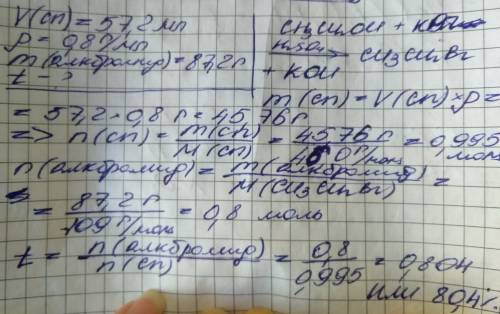 V(сп) = 57,2 мл
ρ = 0,8 г/мл
m(алкбромид) = 87,2 г
t - ?
CH3CH2OH + KBr
H2SO4 → CH3CH2Br
+ KOH
m(сп) = V(сп) × ρ =
= 57,2 · 0,8 г = 45,76 г
=> n(сп) = m(сп) / M(сп) = 45,76 г / 46,0 г/моль = 0,995 моль
n(алкбромид) = m(алкбромид) / M(CH3CH2Br) =
= 87,2 г / 109 г/моль = 0,8 моль
t = n(алкбромид) / n(сп) = 0,8 / 0,995 = 0,804
или 80,4%